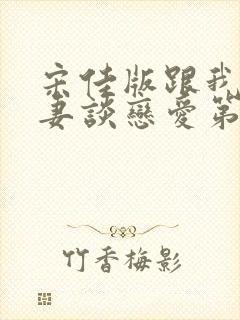 宋佳版跟我
妻談戀愛第
竹香梅影